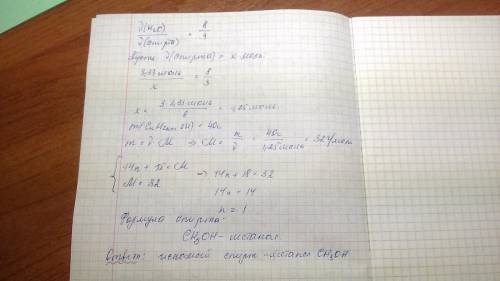 ν(H₂O) / ν(спирта) = 8/3
Пусть ν(спирта) = x моль.
3,33 моль / x = 8/3
x = 3 · 3,33 моль / 8 = 1,25 моль.
m(CnH2n+1OH) = 40г
m = ν · M → M = m/ν = 40г / 1,25 моль = 32 г/моль
14n + 18 = M → 14n + 18 = 32
M = 32 14n = 14
n = 1
Формула спирта:
CH₃OH - метанол.
Ответ: искомый спирт - метанол CH₃OH